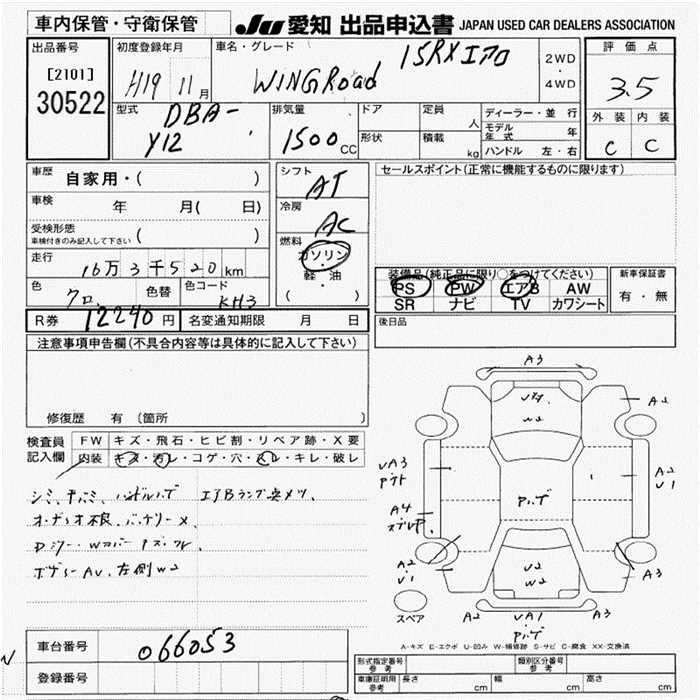 車内保管・守衛保管
JU 愛知 出品申込書 JAPAN USED CAR DEALERS ASSOCIATION
出品番号
[2101]
30522
初度登録年月
H19 11月
車名・グレード
15RXエアロ
WINGRoad
2WD
・
4WD
評価点
3.5
外装 内装
C C
型式
DBA-
Y12
排気量
1500cc
ドア
形状
定員
人
積載
kg
ディーラー・並行
モデル年式 年
ハンドル 左・右
車歴 自家用・( )
車検 年 月( 日)
受検形態
車検付きのみ記入して下さい ( )
走行
16万3千520km
色 クロ 色替 色コード KH3
R券 12240円 名変通知期限 月 日
シフト
AT
冷房
AC
燃料
ガソリン
・
軽・油
( )
セールスポイント(正常に機能するものに限ります)
装備品(純正品に限り○をつけてください)
PS PW エアB AW
SR ナビ TV カワシート
新車保証書
有・無
後日品
注意事項申告欄(不具合内容等は具体的に記入して下さい)
修復歴 有 〔箇所 〕
検査員記入欄
FW キズ・飛石・ヒビ割・リペア跡・X要
内装 キズ・汚レ・コゲ・穴・スレ・キレ・破レ
シミ、
エアBランプ
オーディオ不良、バッテリーメ、
ボデーAU、左側W2
A3
A2
W2
UA3
A2
U1
A4
A2
U1
U2
W2
A3
スペア
A2
UA1
A3
A-キズ E-エクボ U-凹み W-補修跡 S-サビ C-腐食 XX-交換済
車台番号 066053
登録番号
形式指定番号 参考
類別区分番号 参考
車庫証明用 参考 長さ cm 幅 cm 高さ cm